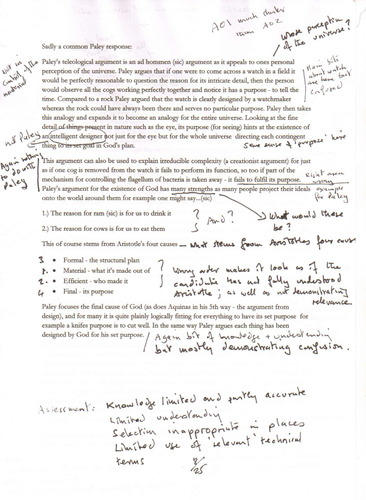 AO1 much thinker
than AO2
Whose perception
of the universe?
Sadly a common Paley response:
Paley's teleological argument is an ad homnen (sic) argument as it appeals to ones personal
perception of the universe. Paley argues that if one were to come across a watch in a field it
would be perfectly reasonable to question the reason for its intricate detail, then the person
would observe all the cogs working perfectly together and notice it has a purpose - to tell the
time. Compared to a rock Paley argued that the watch is clearly designed by a watchmaker
whereas the rock could have always been there and serves no particular purpose. Paley then takes
this analogy and expands it to become an analogy for the entire universe. Looking at the fine
detail of things present in nature such as the eye, its purpose (for seeing) hints at the existence of
an intelligent designer not just for the eye but for the whole universe directing each contingent
thing to its set goal in God's plan.
about watch
are here but
confused
not Paley
Again
to
Paley
some sense of 'purpose' here
This argument can also be used to explain irreducible complexity (a creationist argument) for just
as if one cog is removed from the watch it fails to perform its function, so too if part of the
mechanism for controlling the flagellum of bacteria is taken away - it fails to fulfil its purpose.
Paley's argument for the existence of God has many strengths as many people project their ideals
onto the world around them for example one might say...(sic)
example for
Paley
1.) The reason for ram (sic) is for us to drink it
2.) The reason for cows is for us to eat them
? And?
What would these
be?
This of course stems from Aristotle's four causes - what stems from Aristotle's four causes
3 • Formal - the structural plan
1 • Material - what it's made out of
2 • Efficient - who made it
4 • Final - its purpose
? Wrong order makes it look as if the
candidate has not fully understood
Aristotle; as well as not demonstrating
relevance
Paley focuses the final cause of God (as does Aquinas in his 5th way - the argument from
design), and for many it is quite plainly logically fitting for everything to have its set purpose for
example a knifes purpose is to cut well. In the same way Paley argues each thing has been
designed by God for his set purpose.
Again bit of knowledge + understanding
but mostly demonstrating confusion.
Assessment: Knowledge limited and partly accurate
Limited understanding
Selection inappropriate in places
Limited use of 'relevant' technical
terms
8/25